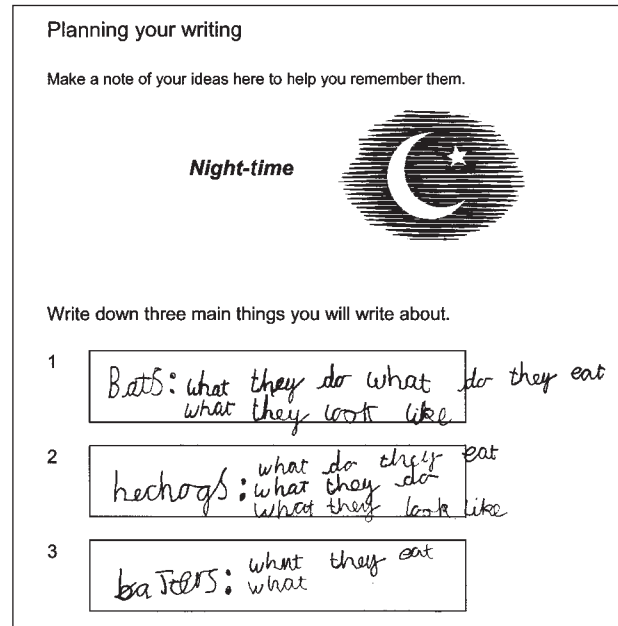 Planning your writing
Make a note of your ideas here to help you remember them.
Night-time
Write down three main things you will write about.
1
Bats: what they do what do they eat
what they look like
2
what do they eat
hechogs: what they do
what they look like
3
baJers: what they eat
what